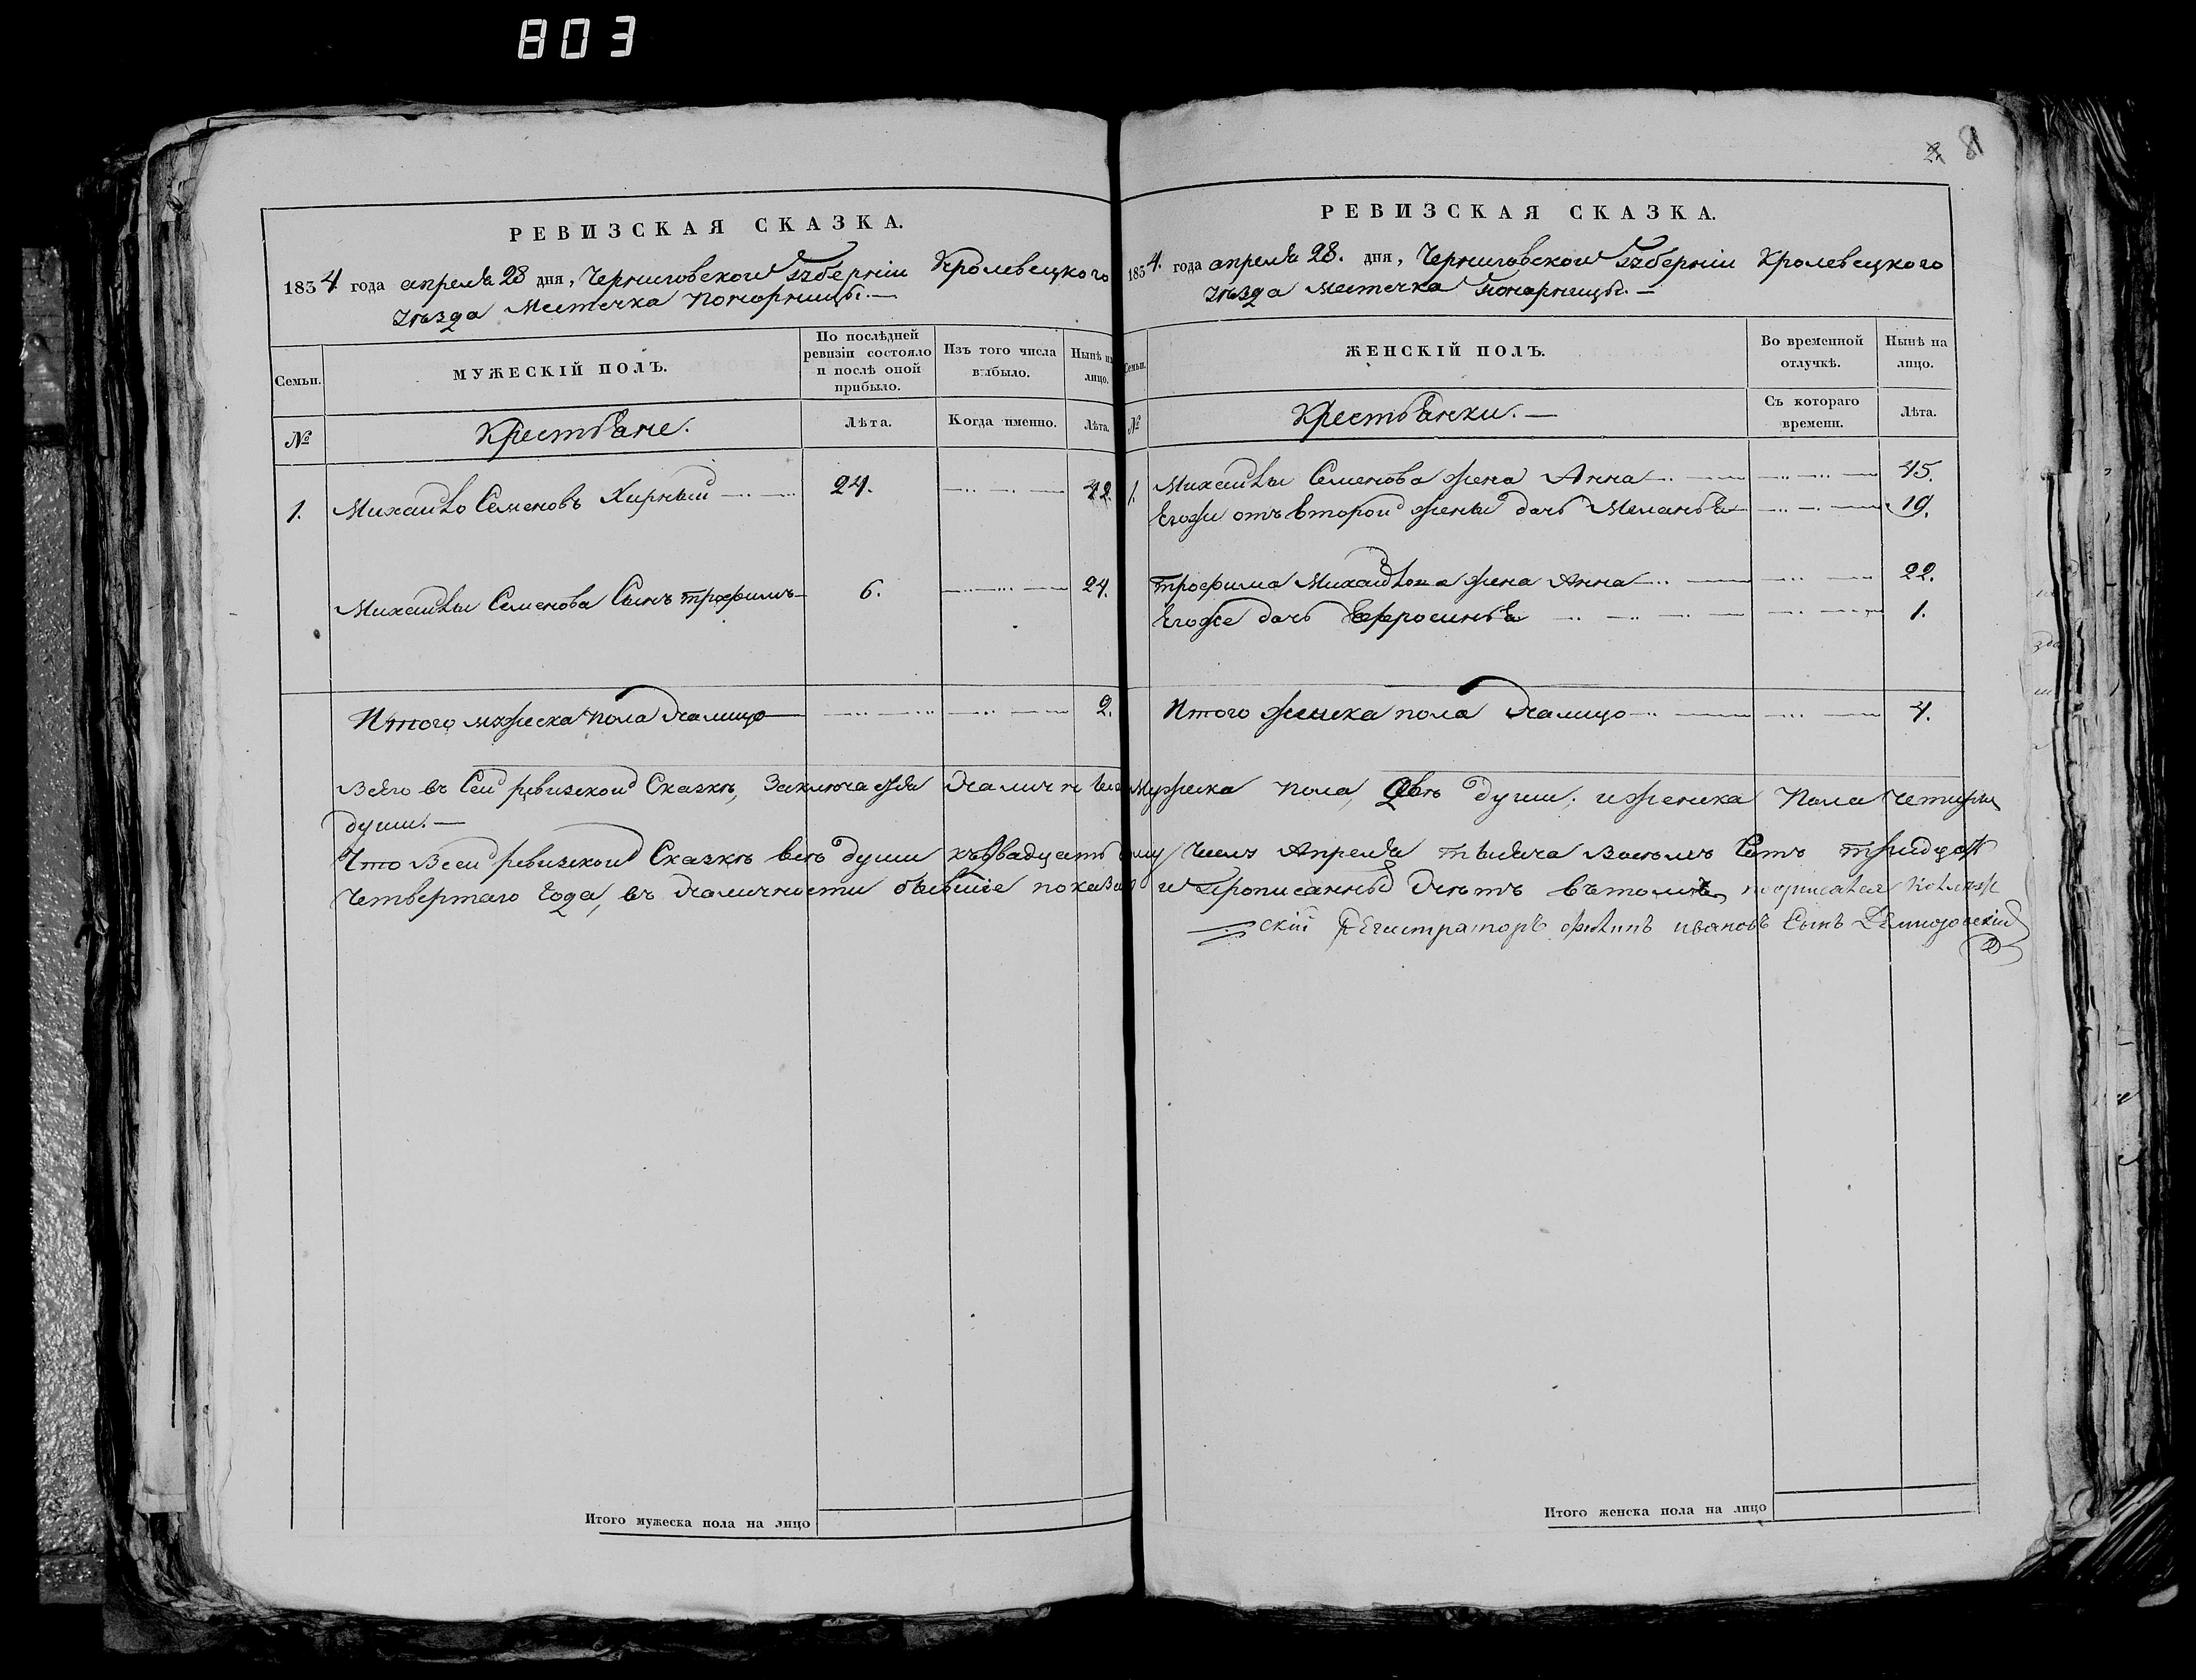 803
8
РЕВИЗСКАЯ СКАЗКА.
1834 года апреля 28 дня, Черниговской Губернiи Кролевецкого
Уѣзда Местечка Понорницы. —
Семьи.
МУЖЕСКIЙ ПОЛЪ.
По послѣдней ревизiи состояло и послѣ оной прибыло.
Изъ того числа выбыло.
Нынѣ на лицо.
№
Крестьяне.
Лѣта.
Когда именно.
Лѣта.
1. Михайло Семеновъ Хирный 24. 42.
Михайлы Семенова Сынъ трофимъ 6. 24.
Итого мужеска пола налицо 2.
РЕВИЗСКАЯ СКАЗКА.
1834. года апреля 28. дня, Черниговской Губернiи Кролевецкого
Уѣзда местечка Понорницы. —
Семьи.
ЖЕНСКIЙ ПОЛЪ.
Во временной отлучкѣ.
Нынѣ на лицо.
№
Крестьянки. —
Съ котораго времени.
Лѣта.
1. Михайлы Семенова жена Анна 45.
Егожи отъ второй жены дочь Меланья 19.
трофима Михайлова жена Анна 22.
Егоже дочь Ефросинья 1.
Итого женска пола налицо 4.
Всего въ Сей ревизской Сказкѣ, Заключается Мужеска пола, Двѣ души. и женска Пола четыри
души. —
Что Всей ревизской Сказкѣ всѣ души къ двадцать Числу Апреля тысяча Восемъ Сотъ тридцат
Четвертаго Года, въ наличности бывшiе показаны и Прописанных нѣтъ въ томъ подписался Колеж
скiй Регистраторъ филипъ ивановъ Сынъ Демидовскiй